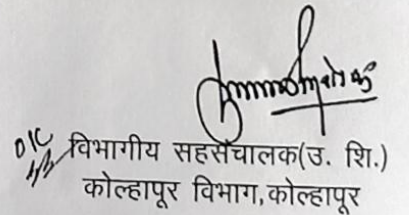 O/C
विभागीय सहसंचालक(उ. शि.)
कोल्हापूर विभाग,कोल्हापूर